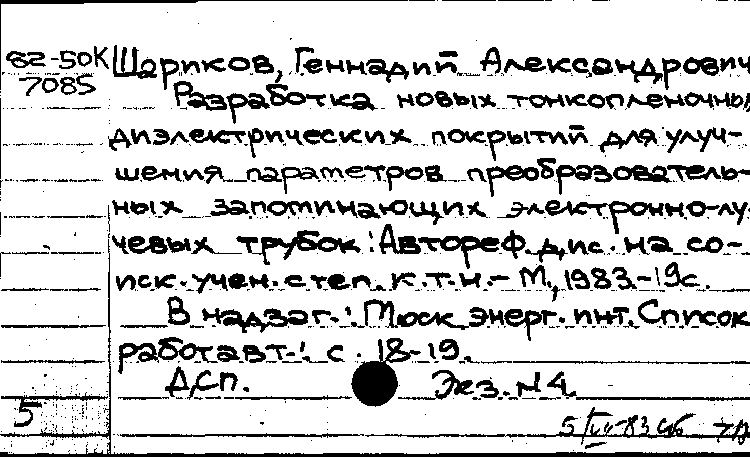 82-50К Шориков, Геннадий Александрович
7085
Разработка новых тонкопленочных
диэлектрических покрытий для улуч-
шения параметров преобразователь-
ных запоминающих электронно-лу-
чевых трубок: Автореф. дис. на со-
иск. учен. степ. к.т.н. - М., 1983. - 19с.
В надзаг.: Моск. энерг. инт. Список
работ авт.: с. 18-19.
ДСП. Экз. N4.
5